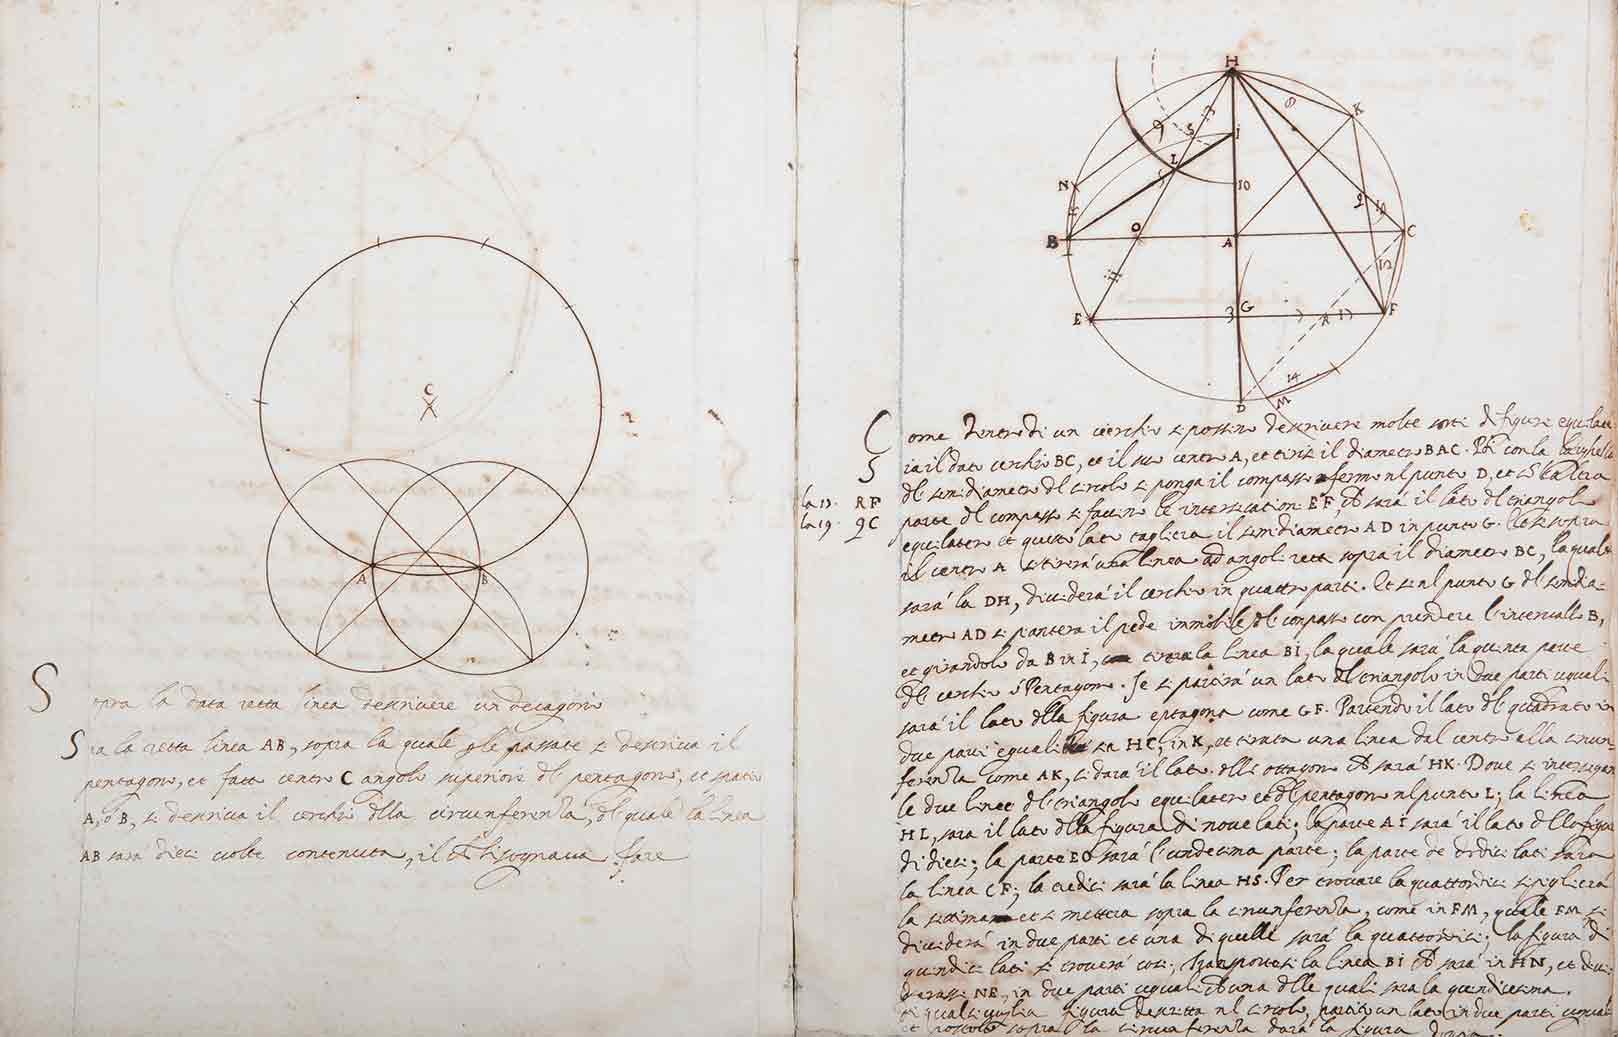 C
A
B
Sopra la data retta linea descrivere un decagono
Sia la retta linea AB, sopra la quale per le passate si descriva il
pentagono, et fatto centro C angolo superiore del pentagono, et spatio
A, ò B, si descriva il cerchio della circunferenza, del quale la linea
AB sarà dieci volte contenuta, il che bisognava fare
H
K
9
6
3
5
I
L
N
10
9
15
B
O
A
C
11
12
E
3
G
7
R
13
F
14
D
M
Come dentro di un cerchio si possino descrivere molte sorti di figure equilatere
Sia il dato cerchio BC, et il suo centro A, et tirisi il diametro BAC. Poi con la larghezza
del semidiametro del circolo si ponga il compasso fermo nel punto D, et con l'altra
la 13. RF
la 19. QC
parte del compasso si faccino le intersecationi EF, che sarà il lato del triangolo
equilatero et questo lato taglierà il semidiametro AD in punto G. et sopra
il centro A si tirerà una linea ad angoli retti sopra il diametro BC, la quale
sarà la DH, dividerà il cerchio in quattro parti. Et se nel punto G del semidia-
metro AD si pianterà il piede immobile del compasso con prendere l'intervallo B,
et girandolo da B in I, tirare la linea BI, la quale sarà la quinta parte
del cerchio ò Pentagono. Se si partirà un lato del triangolo in due parti uguali
sarà il lato della figura eptagona come GF. Partendo il lato del quadrato in
due parti equali sia HC, in K, et tirata una linea dal centro alla circun-
ferenza come AK, si darà il lato dello ottagono che sarà HK. Dove si intersegan
le due linee del triangolo equilatero et del pentagono nel punto L; la linea
HL, sarà il lato della figura di nove lati; la parte AI sarà il lato della figura
di dieci; la parte EO sarà l'undecima parte; la parte de dodici lati sarà
la linea CF; la tredici sarà la linea HS. Per trovare la quattordici si piglierà
la settima et si metterà sopra la circunferenza, come in FM, quale FM si
dividerà in due parti et una di quelle sarà la quattordici; la figura di
quindici lati si troverà così; Trasportisi la linea BI che sarà in HN, et divi-
derassi NE, in due parti uguali che una delle quali sarà la quindicesima.
di qualsivoglia figura descritta nel circolo, partito un lato in due parti uguali
et postolo sopra la circunferenza darà la figura doppia.